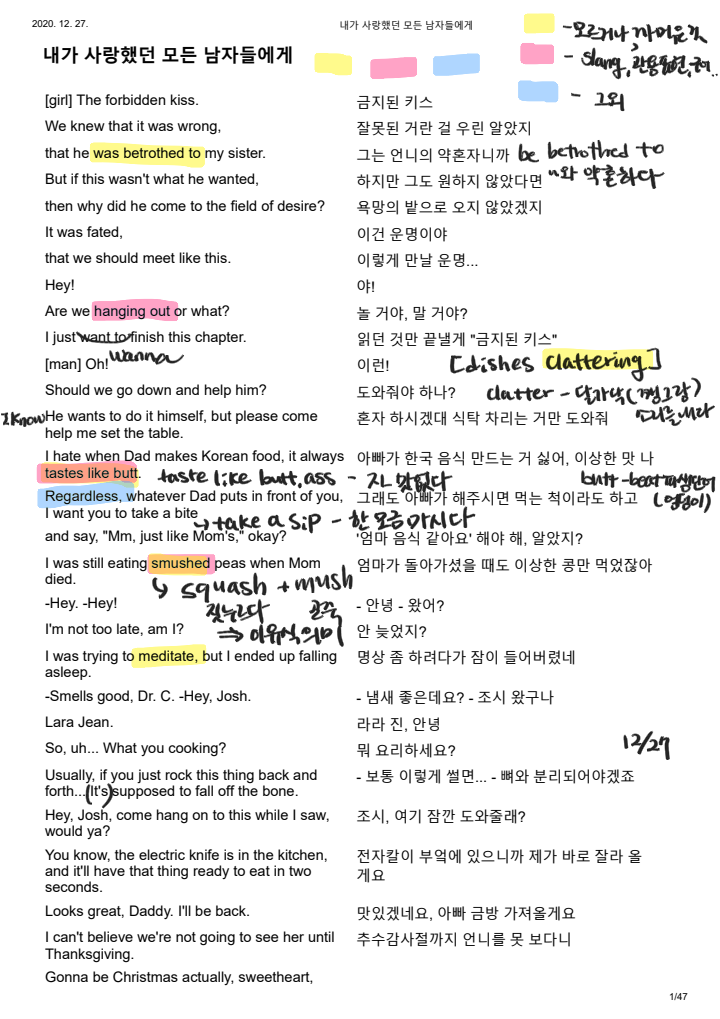 2020. 12. 27.
내가 사랑했던 모든 남자들에게
- 모르거나 까먹은 것
내가 사랑했던 모든 남자들에게
- slang, 관용표현, 숙어..
- 그외
[girl] The forbidden kiss.
금지된 키스
We knew that it was wrong,
잘못된 거란 걸 우린 알았지
that he was betrothed to my sister.
그는 언니의 약혼자니까
be betrothed to
~와 약혼하다
But if this wasn't what he wanted,
하지만 그도 원하지 않았다면
then why did he come to the field of desire?
욕망의 밭으로 오지 않았겠지
It was fated,
이건 운명이야
that we should meet like this.
이렇게 만날 운명...
Hey!
야!
Are we hanging out or what?
놀 거야, 말 거야?
I just want to finish this chapter.
읽던 것만 끝낼게 "금지된 키스"
wanna
[man] Oh!
이런!
[dishes clattering]
Should we go down and help him?
도와줘야 하나?
clatter - 달가닥(쨍그랑)
소리를 내다
I know
He wants to do it himself, but please come
help me set the table.
혼자 하시겠대 식탁 차리는 거만 도와줘
I hate when Dad makes Korean food, it always
tastes like butt.
아빠가 한국 음식 만드는 거 싫어, 이상한 맛 나
taste like butt, ass - 맛없다
butt - 파생단어
(엉덩이)
Regardless, whatever Dad puts in front of you,
I want you to take a bite
그래도 아빠가 해주시면 먹는 척이라도 하고
↳ take a sip - 한 모금 마시다
and say, "Mm, just like Mom's," okay?
'엄마 음식 같아요' 해야 해, 알았지?
I was still eating smushed peas when Mom
died.
엄마가 돌아가셨을 때도 이상한 콩만 먹었잖아
↳ squash + mush
짓누르다 곤죽
⇒ 이유식 의미
-Hey. -Hey!
- 안녕 - 왔어?
I'm not too late, am I?
안 늦었지?
I was trying to meditate, but I ended up falling
asleep.
명상 좀 하려다가 잠이 들어버렸네
-Smells good, Dr. C. -Hey, Josh.
- 냄새 좋은데요? - 조시 왔구나
Lara Jean.
라라 진, 안녕
So, uh... What you cooking?
뭐 요리하세요?
12/27
Usually, if you just rock this thing back and
forth... (It's) supposed to fall off the bone.
- 보통 이렇게 썰면... - 뼈와 분리되어야겠죠
Hey, Josh, come hang on to this while I saw,
would ya?
조시, 여기 잠깐 도와줄래?
You know, the electric knife is in the kitchen,
and it'll have that thing ready to eat in two
seconds.
전자칼이 부엌에 있으니까 제가 바로 잘라 올
게요
Looks great, Daddy. I'll be back.
맛있겠네요, 아빠 금방 가져올게요
I can't believe we're not going to see her until
Thanksgiving.
추수감사절까지 언니를 못 보다니
Gonna be Christmas actually, sweetheart,
1/47